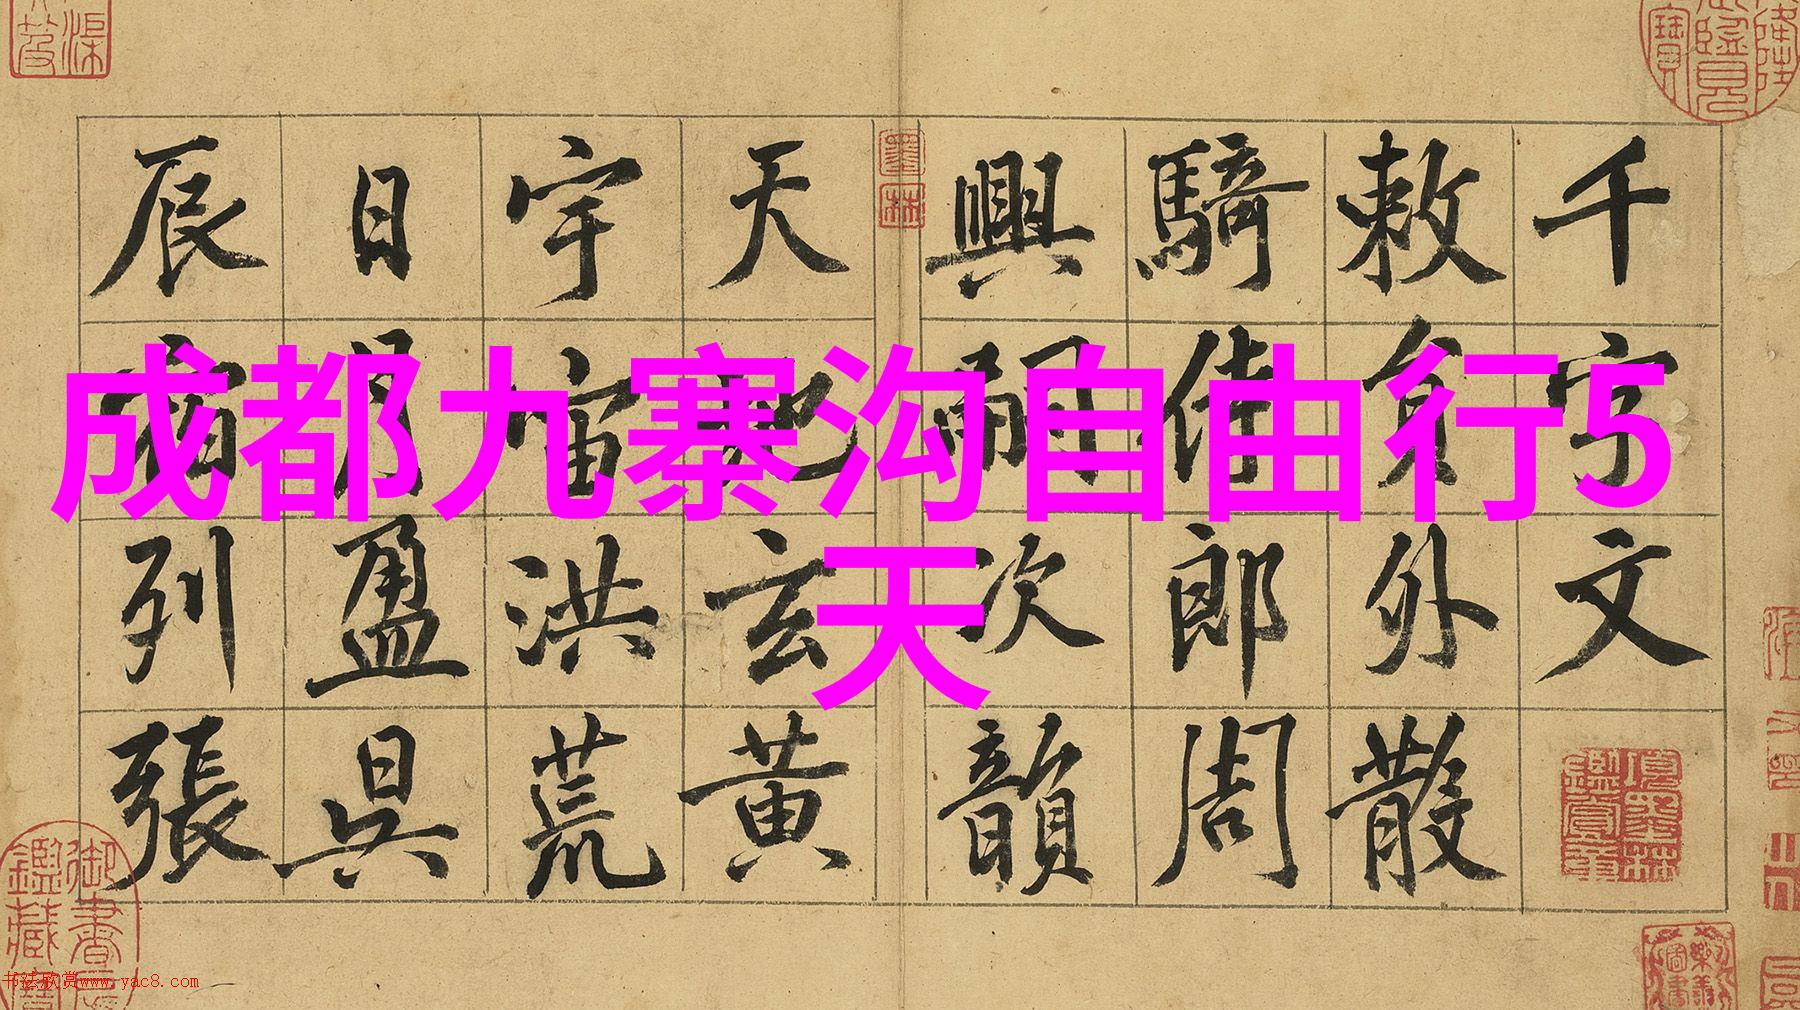 成都九寨沟自由行5
天
千字文
敕員外散
騎侍郎周
興嗣次韻
天地玄黄
宇宙洪荒
日月盈昃
辰宿列張
墨林
书法欣赏www.yac8.com